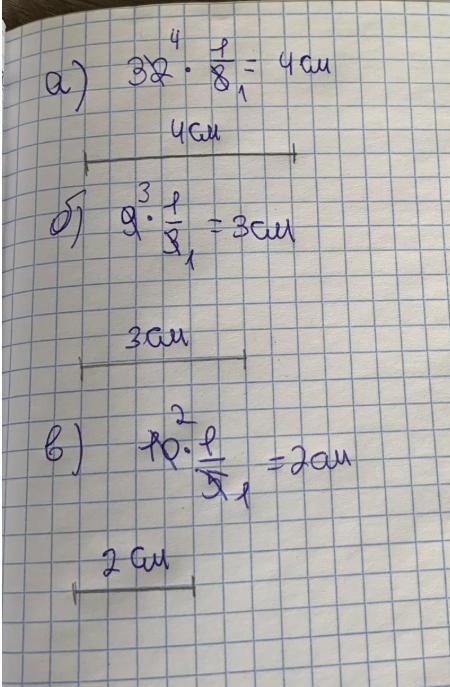 а) 32⁴ · 1/8₁ = 4 см
4 см
б) 9³ · 1/3₁ = 3 см
3 см
в) 10² · 1/5₁ = 2 см
2 см